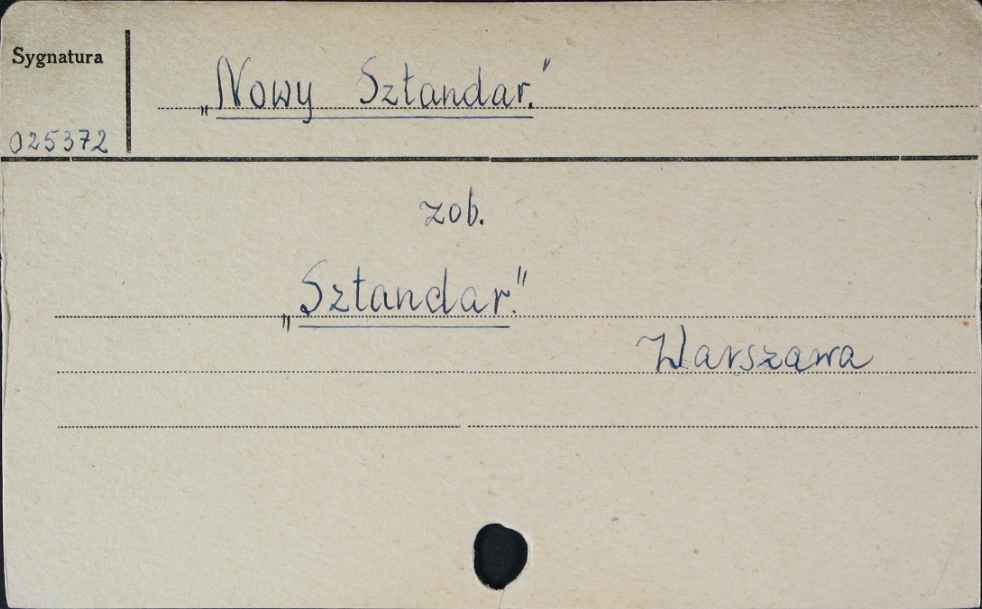 Sygnatura
„Nowy Sztandar."
025372
zob.
„Sztandar."
Warszawa